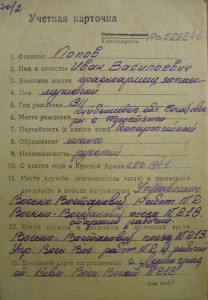 70/2
Учетная карточка
1. Фамилия Попов
2. Имя и отчество Иван Васильевич
3. Воинское звание красноармеец запаса
4. Пол мужской
5. Год рождения 1911
6. Место рождения
7. Партийность (с какого года) беспартийный
8. Образование низшее
9. Национальность русский
10. С какого года в Красной Армии 1941
11. Место службы (наименование части) и занимаемая
должность в момент награждения Управление
Военно Восстановит. Работ № 2
Военно-Восстановит поезд № 213.
старший рабочий
12. Место службы и занимаемая должность в настоящее
Военно-Восстановит поезд № 213
Упр. Воен. Вос. работ № 2 рабочий
13. Домашний адрес награжденного г. Ленинград
ст. Нива Воен. Восст. № 213.